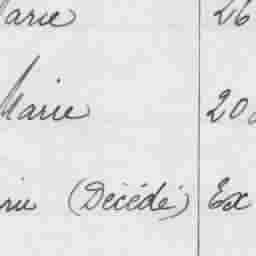 arie 26
Marie 20
rie (Décédé) Ex